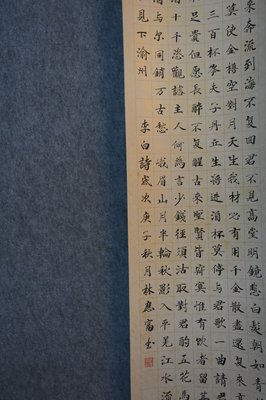 來奔流到海不復回君不見高堂明鏡悲白髮朝如青
莫使金樽空對月天生我材必有用千金散盡還復來
三百杯岑夫子丹丘生將進酒杯莫停與君歌一曲請君
足貴但願長醉不復醒古來聖賢皆寂寞惟有飲者留其
酒十千恣歡謔主人何為言少錢徑須沽取對君酌五花馬
出與爾同銷萬古愁 峨眉山月半輪秋影入平羌江水流
見下渝州 李白詩歲次庚子秋月林應富書